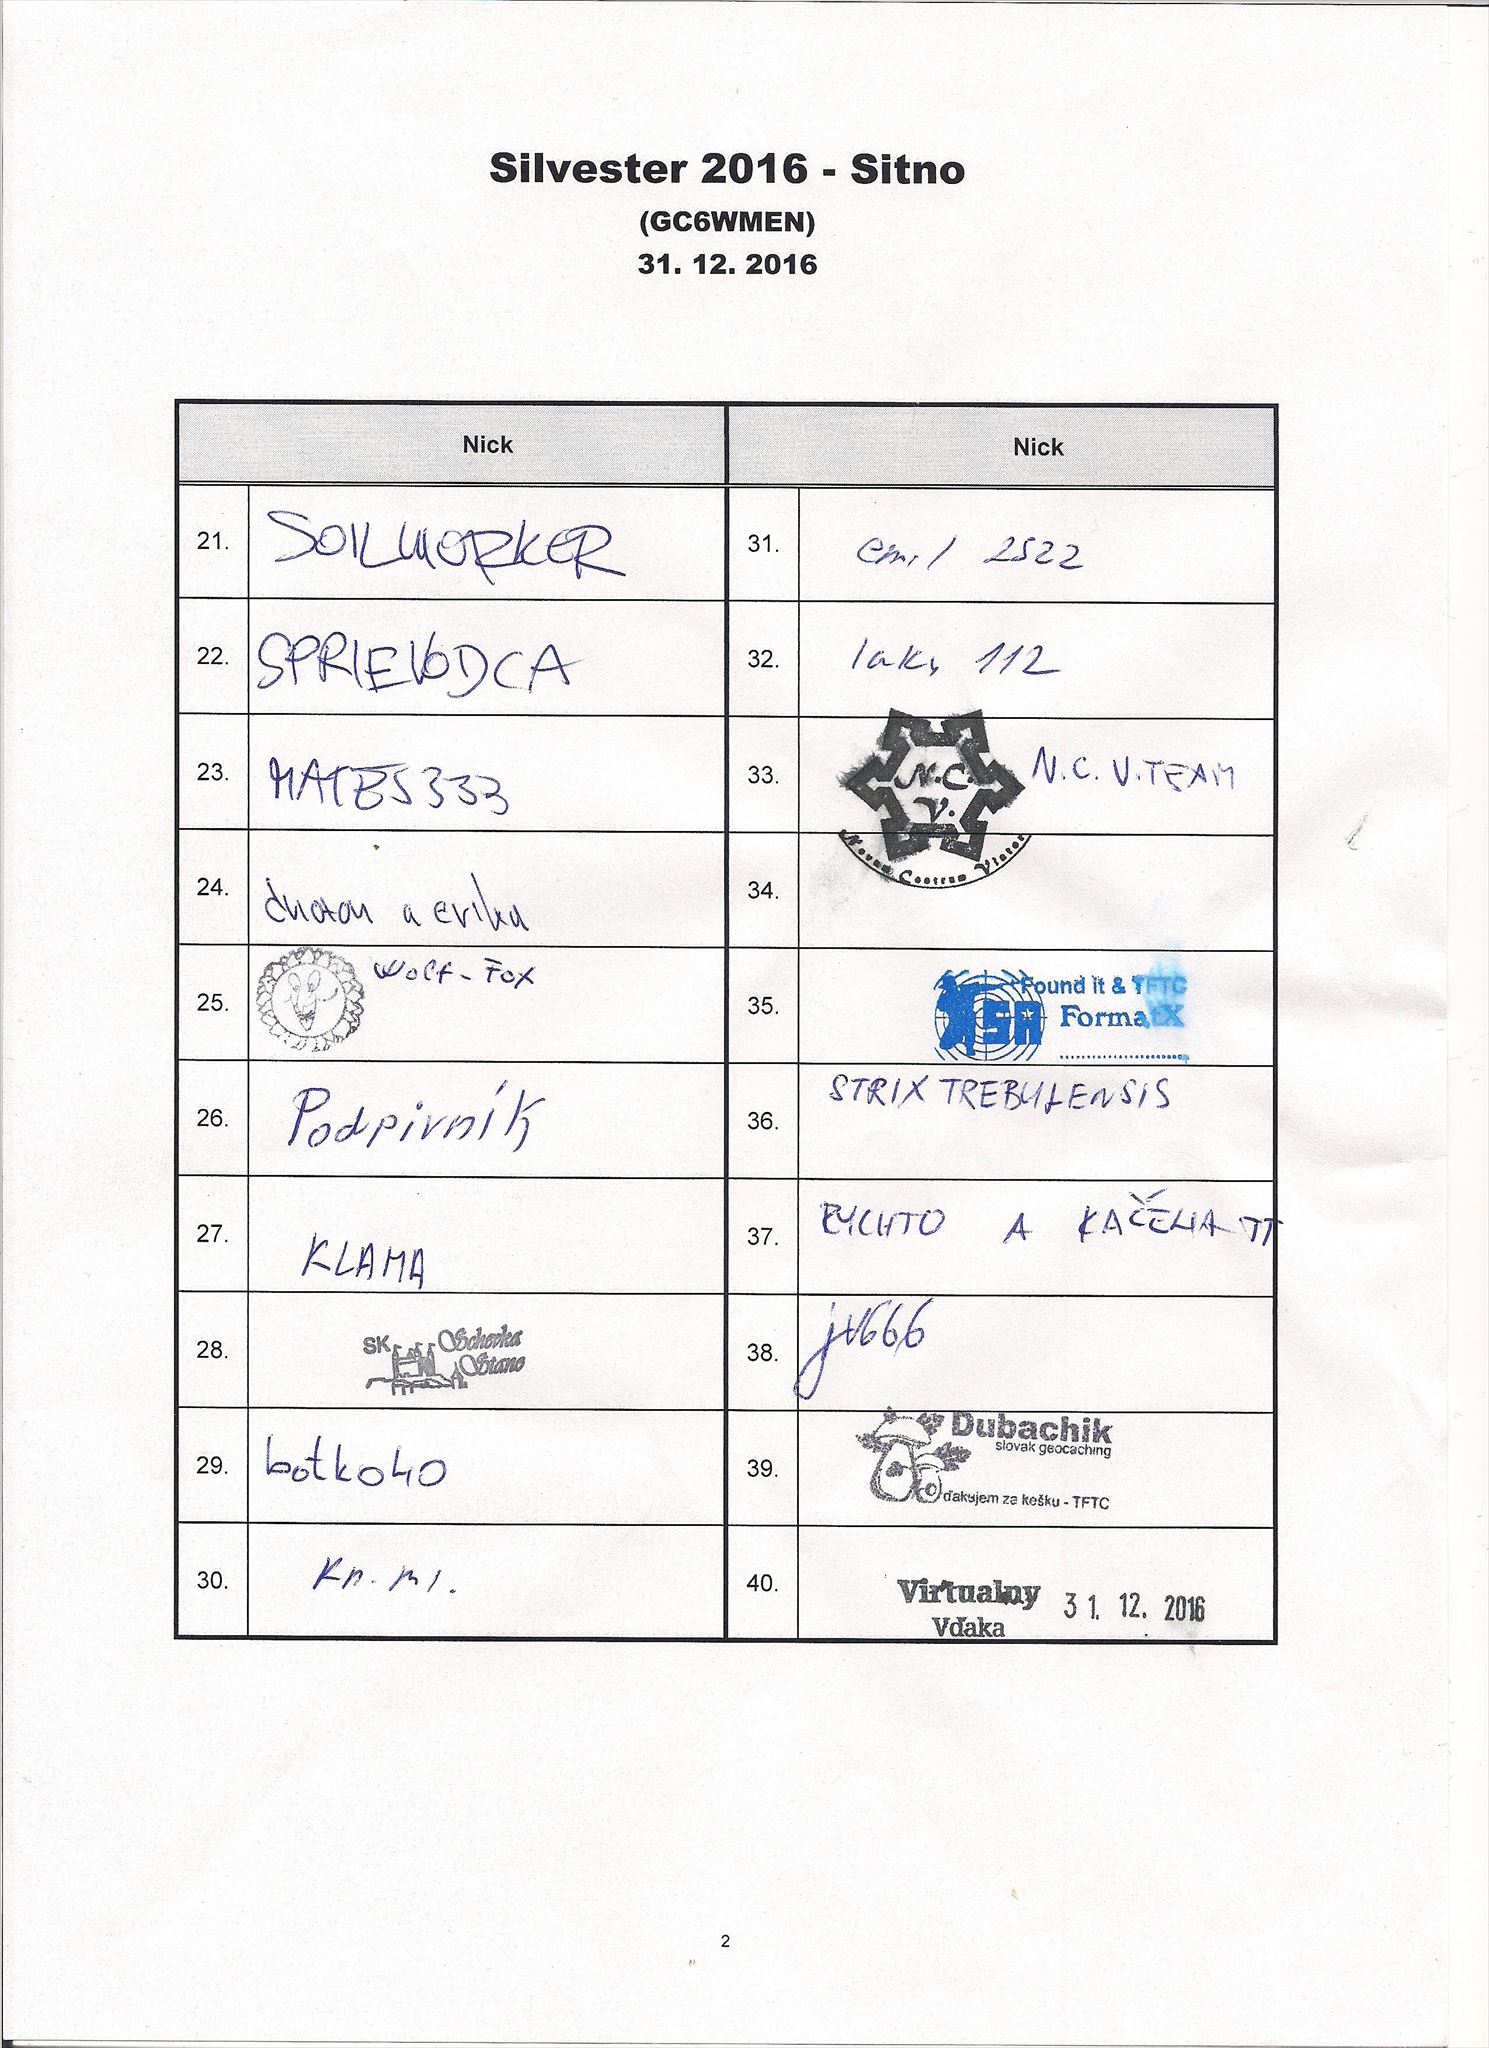 Silvester 2016 - Sitno
(GC6WMEN)
31. 12. 2016
Nick
Nick
21. SOILWORKER
22. SPRIEVODCA
23. MATES333
24. a
25. Wolf-Fox
26. Podpivník
27. KLAMA
28. SK Schevka
Stano
29. botko40
30. Kn. ml.
31. emil 2522
32. 112
33. N.C. V. N.C.V.TEAM
Novum Centrum Viator
34.
35. Found it & TFTC
SA FormatX
36. STRIX TREBULENSIS
37. RYCHTO A KAČENA TT
38. jv666
39. Dubachik
slovak geocaching
ďakujem za kešku - TFTC
40. Virtualny 31. 12. 2016
Vďaka
2